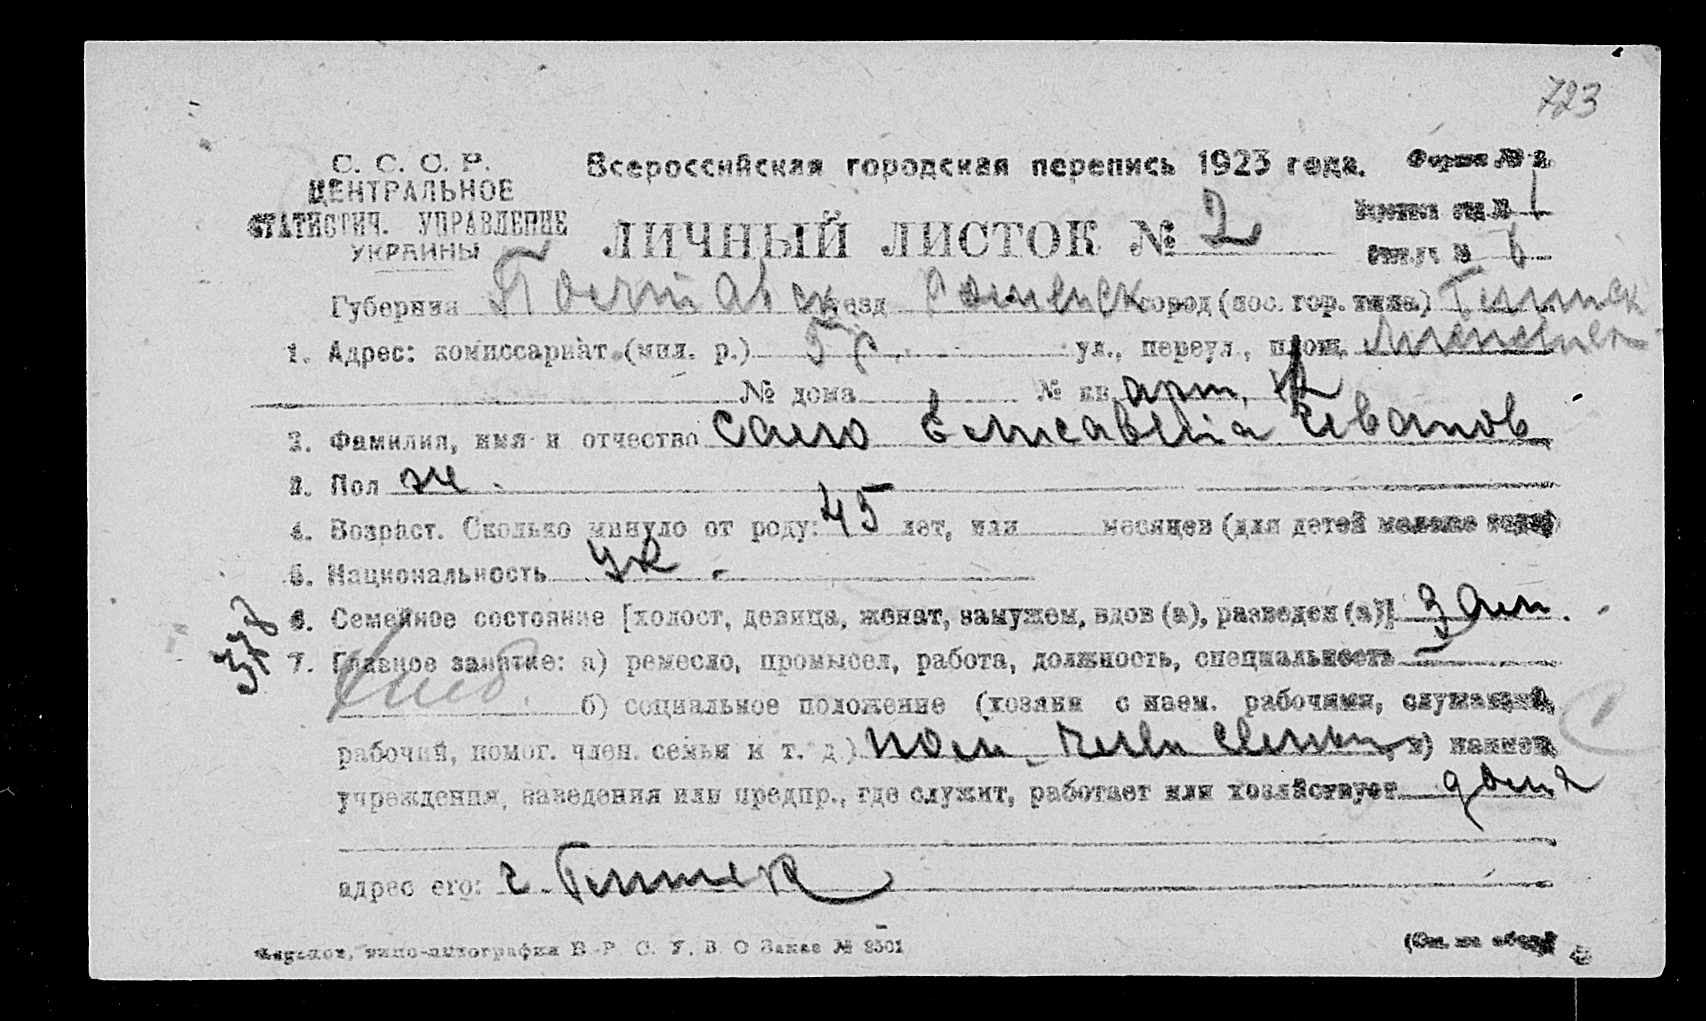 723
С. С. С. Р.
ЦЕНТРАЛЬНОЕ
СТАТИСТИЧ. УПРАВЛЕНИЕ
УКРАИНЫ
Всероссийская городская перепись 1923 года.
Форма № 2
ЛИЧНЫЙ ЛИСТОК № 2
№ 1
№ 6
Губерния Полтавск уезд Роменск город (пос. гор. типа) Глинск
1. Адрес: комиссариат (мил. р.) 5 р. ул., переул., площ.
№ дома № кв.
2. Фамилия, имя и отчество Сало Елисавета Иванов
3. Пол ж.
4. Возраст. Сколько минуло от роду: 45 лет, или месяцев (для детей моложе года)
5. Национальность ук.
6. Семейное состояние [холост, девица, женат, замужем, вдов (а), разведен (а)] Зам.
378
7. Главное занятие: а) ремесло, промысел, работа, должность, специальность
б) социальное положение (хозяин с наем. рабочими, служащий,
рабочий, помог. член. семьи и т. д.) пом. в) наимен.
учреждения, заведения или предпр., где служит, работает или хозяйствует дома
адрес его: г Глинск
типо-литография В. Р. С. У. В. О Заказ № 2501
(См. на обор.)